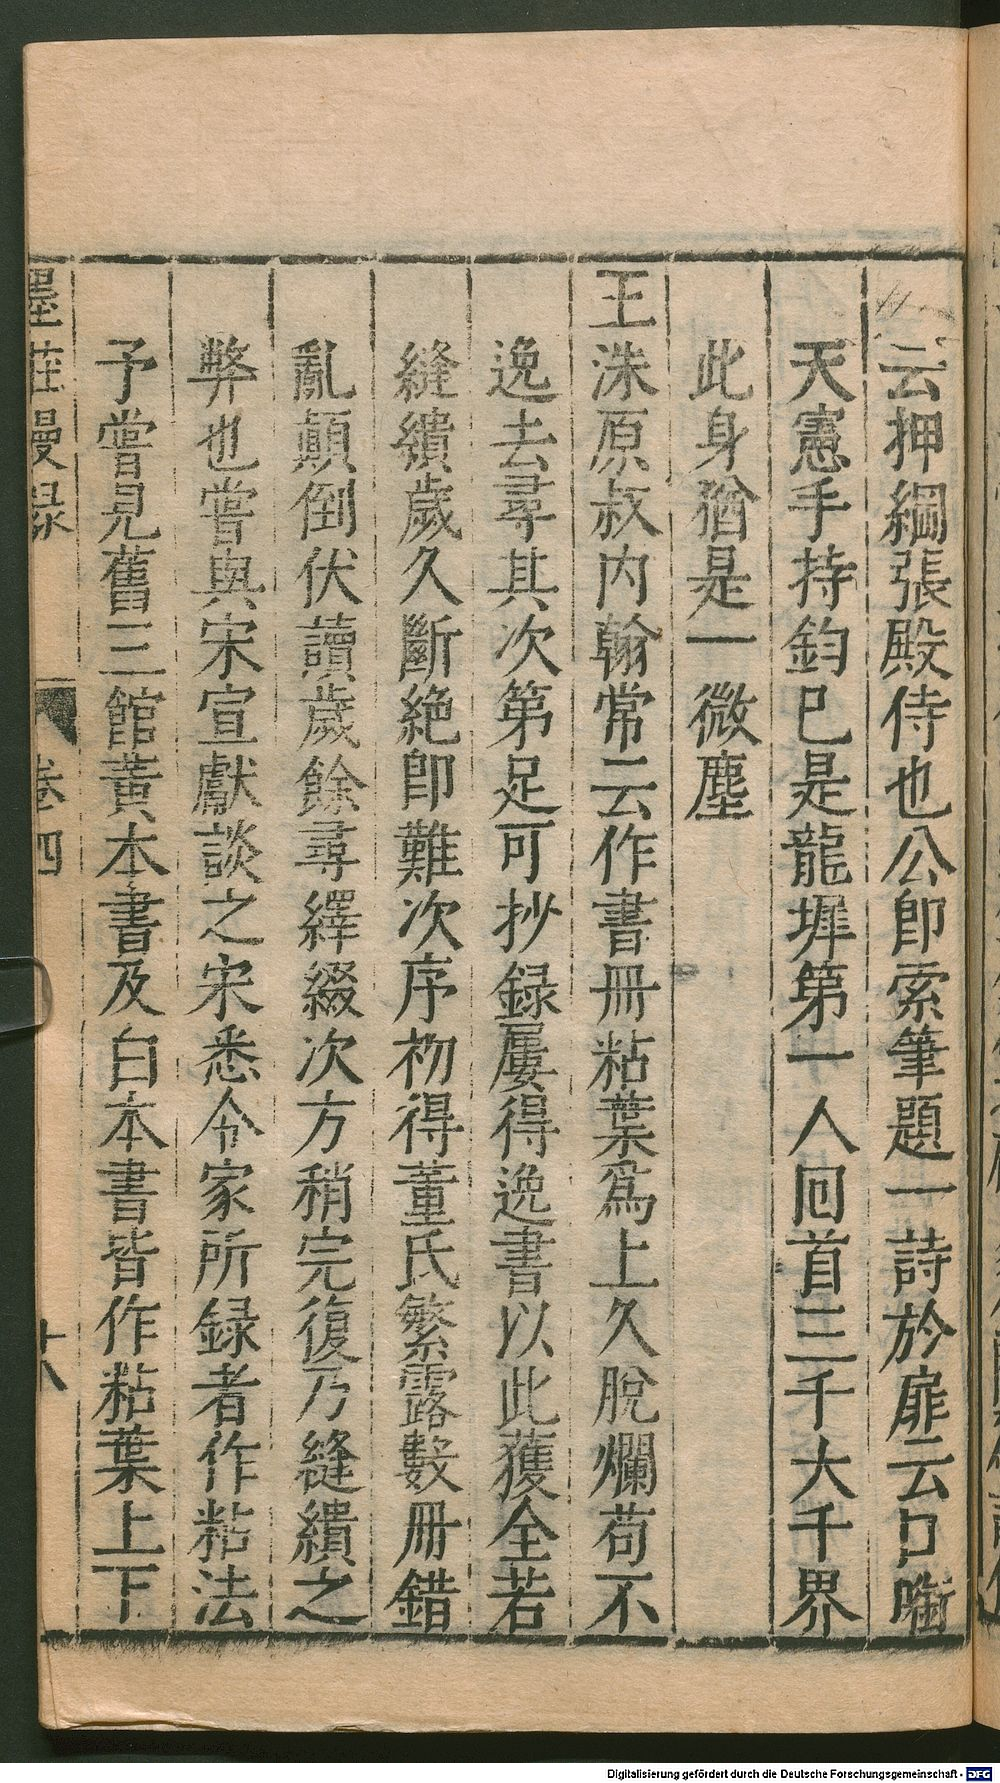 云押綱張殿侍也公即索筆題一詩於扉云口㗸
天憲手持鈞巳是龍墀第一人囘首三千大千界
此身猶是一微塵
王洙原叔内翰常云作書冊粘葉爲上久脫爛苟不
逸去尋其次第足可抄録屢得逸書以此獲全若
縫繢歲久斷絶即難次序初得董氏繁露數冊錯
亂顛倒伏讀歲餘尋繹綴次方稍完復乃縫繢之
弊也嘗與宋宣獻談之宋悉令家所録者作粘法
予嘗見舊三館黃本書及白本書皆作粘葉上下
墨莊漫録 卷四 十八
Digitalisierung gefördert durch die Deutsche Forschungsgemeinschaft - DFG